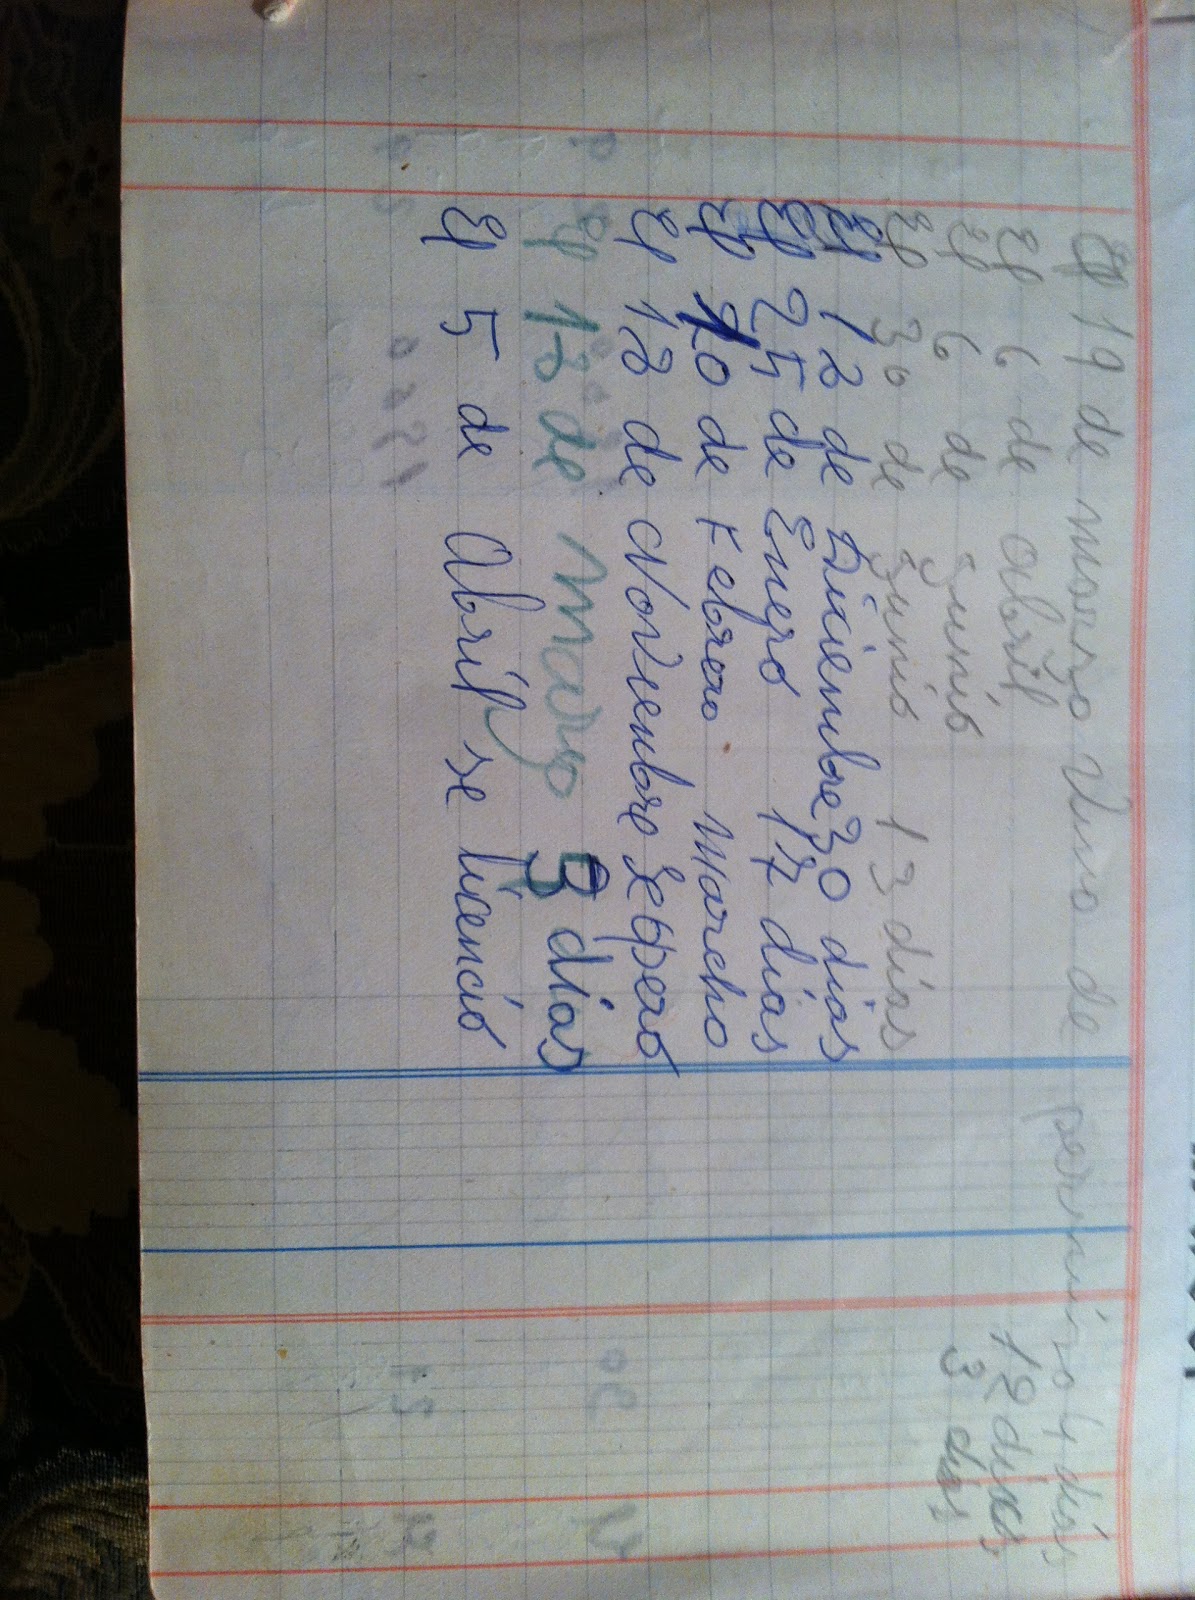 El 19 de marzo Vino de permiso 4 dias
El 6 de abril 12 dias
El 6 de Junio 3 dias
El 30 de Junio 13 dias
El 12 de Diciembre 30 dias
El 25 de Enero 17 dias
El 20 de Febrero Marcho
El 12 de Noviembre
El 13 de Marzo dias
El 5 de Abril se licenció